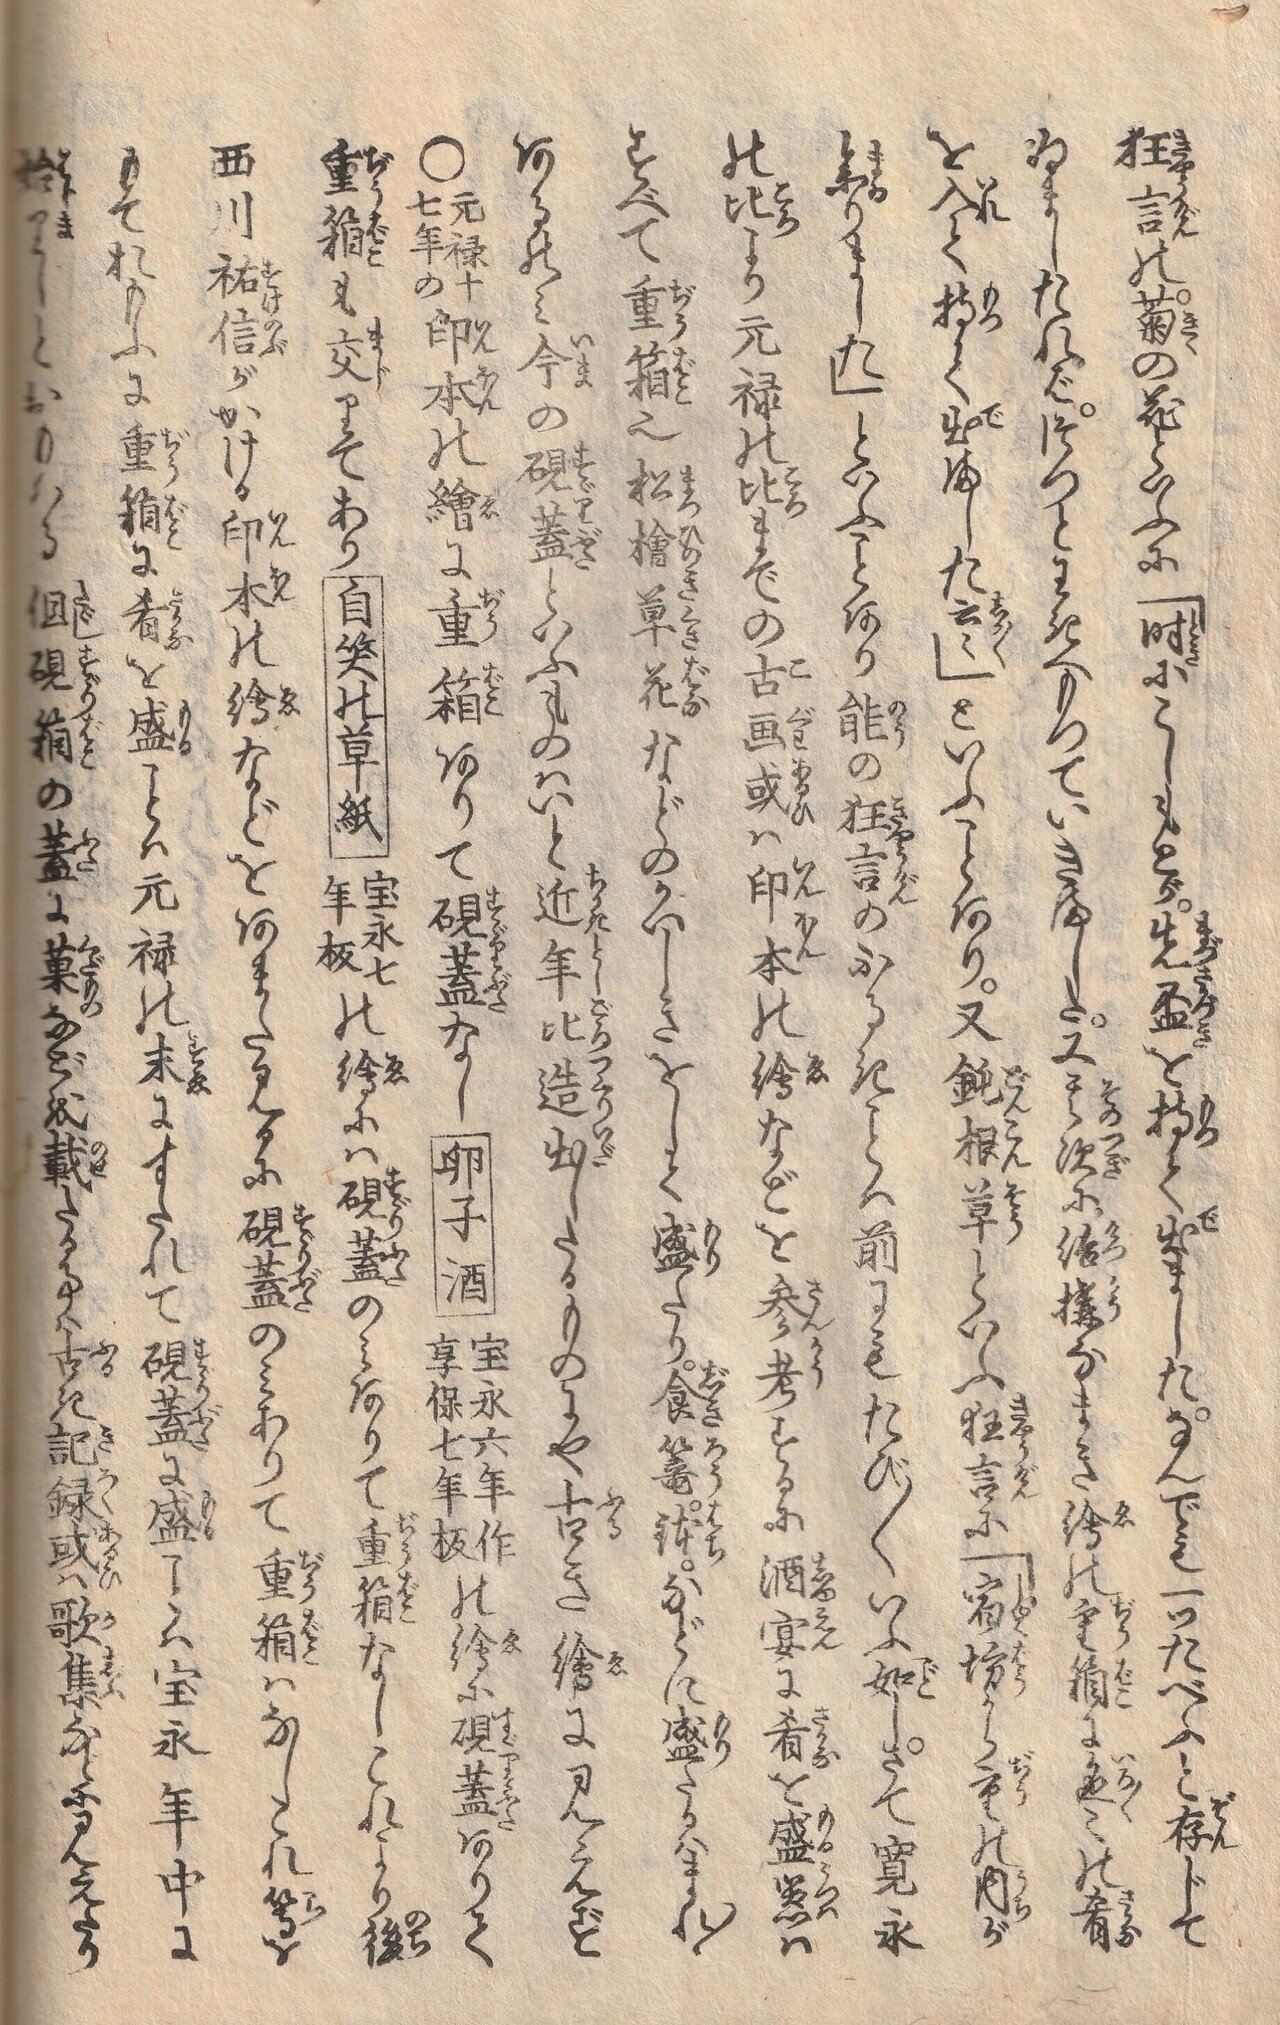 狂言の菊の花といふに「時にこしもとが。先盃を持て出ました。なんでも一つたべふと存じて
ゐましたれば。
を入て持て出ました云々」といふことあり。又鈍根草といふ狂言に「宿坊から重の内が
参りました」といふことあり能の狂言のふるきことは前にもたび〳〵いふ如し。さて寛永
の比より元禄の比までの古画或は印本の絵などを参考するに酒宴に肴を盛器は
すべて重箱也松檜草花などのかいしきをして盛たり。食篭。鉢。などに盛たるはまれに
あるのみ今の硯蓋といふものはいと近年比造出したるものにや古き絵に見えず
○元禄十七年の印本の繪に重箱ありて硯蓋なし 卵子酒 宝永六年作享保七年板の絵に硯蓋ありて
重箱も交りてあり 自笑の草紙 宝永七年板の絵には硯蓋のみありて重箱なしこれより後
西川祐信がかける印本の絵などをあまた見るに硯蓋のみありて重箱はなしこれ等を
もておもふに重箱に肴を盛ことは元禄の末にすたれて硯蓋に盛ことは宝永年中に
始りしとおもはる但硯箱の蓋に菓などを載たる事は古き記録或は歌集などに見えたり